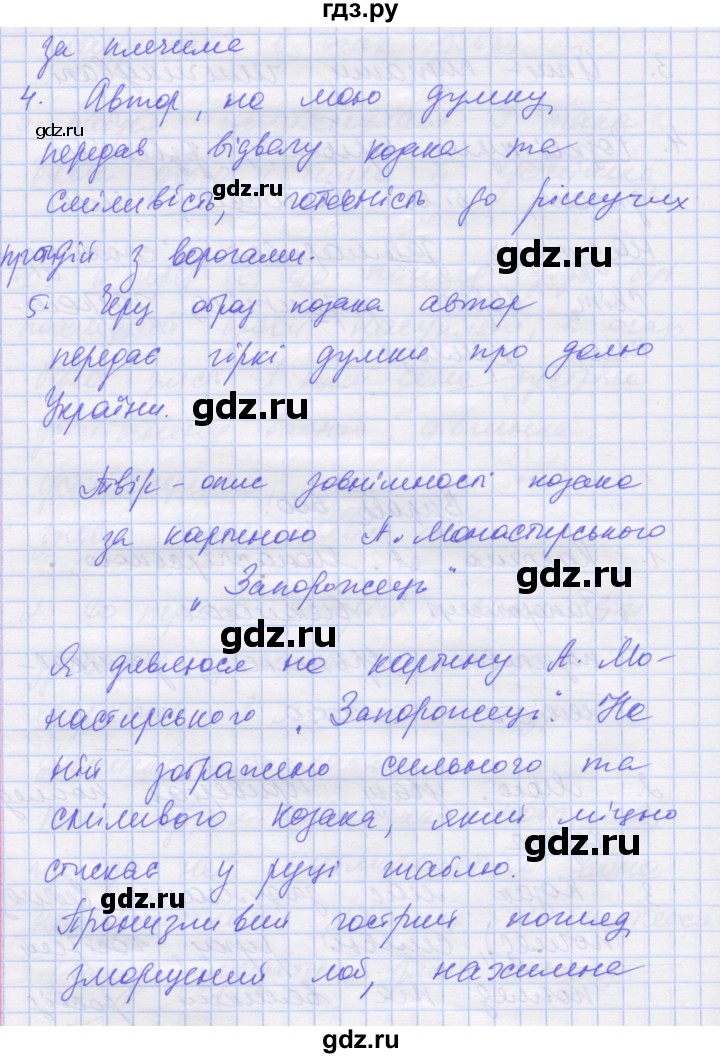 гдз.ру
за плечима
4. Автор, на мою думку,
gdz.ru
передав відвагу козака та
сміливість, готовність до рішучих
gdz.ru
протидій з ворогами.
gdz.ru
5. Через образ козака автор
передає гіркі думки про долю
України.
gdz.ru
Твір – опис зовнішності козака
за картиною А. Монастирського
„Запорожець"
gdz.ru
gdz.ru
Я дивлюся на картину А. Мо-
настирського „Запорожець". На
ній зображено сильного та
сміливого козака, який міцно
gdz.ru
стискає у руці шаблю.
gdz.ru
Пронизливий гострий погляд,
зморщений лоб, нахилена
gdz.ru
gdz.ru